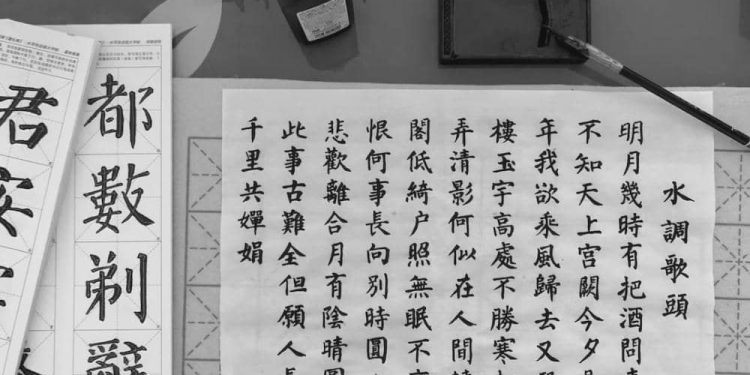 水調歌頭
明月幾時有把酒問
不知天上宫闕今夕
年我欲乘風歸去又
樓玉宇高處不勝寒
弄清影何似在人間
閣低綺户照無眠不
恨何事長向别時圓
悲歡離合月有陰晴圓
此事古難全但願人長
千里共嬋娟
都數剃辭
君安